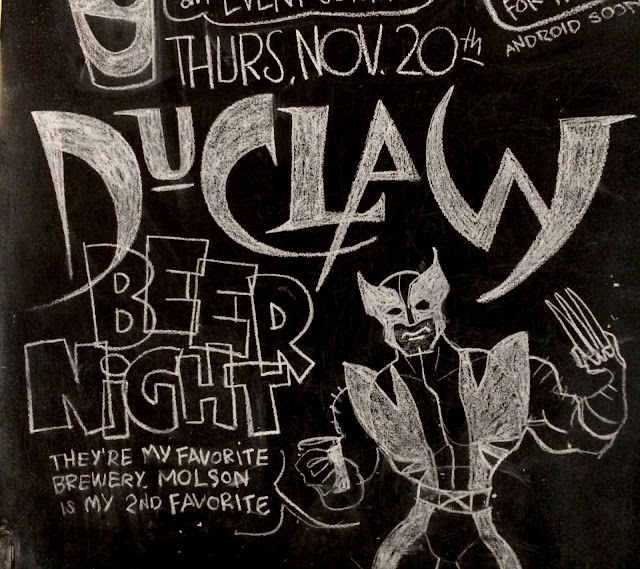 an EVENT
FOR
ANDROID
THURS, NOV. 20th
DUCLAW
BEER
NiGHT
THEY'RE MY FAVORITE
BREWERY. MOLSON
IS MY 2ND FAVORITE